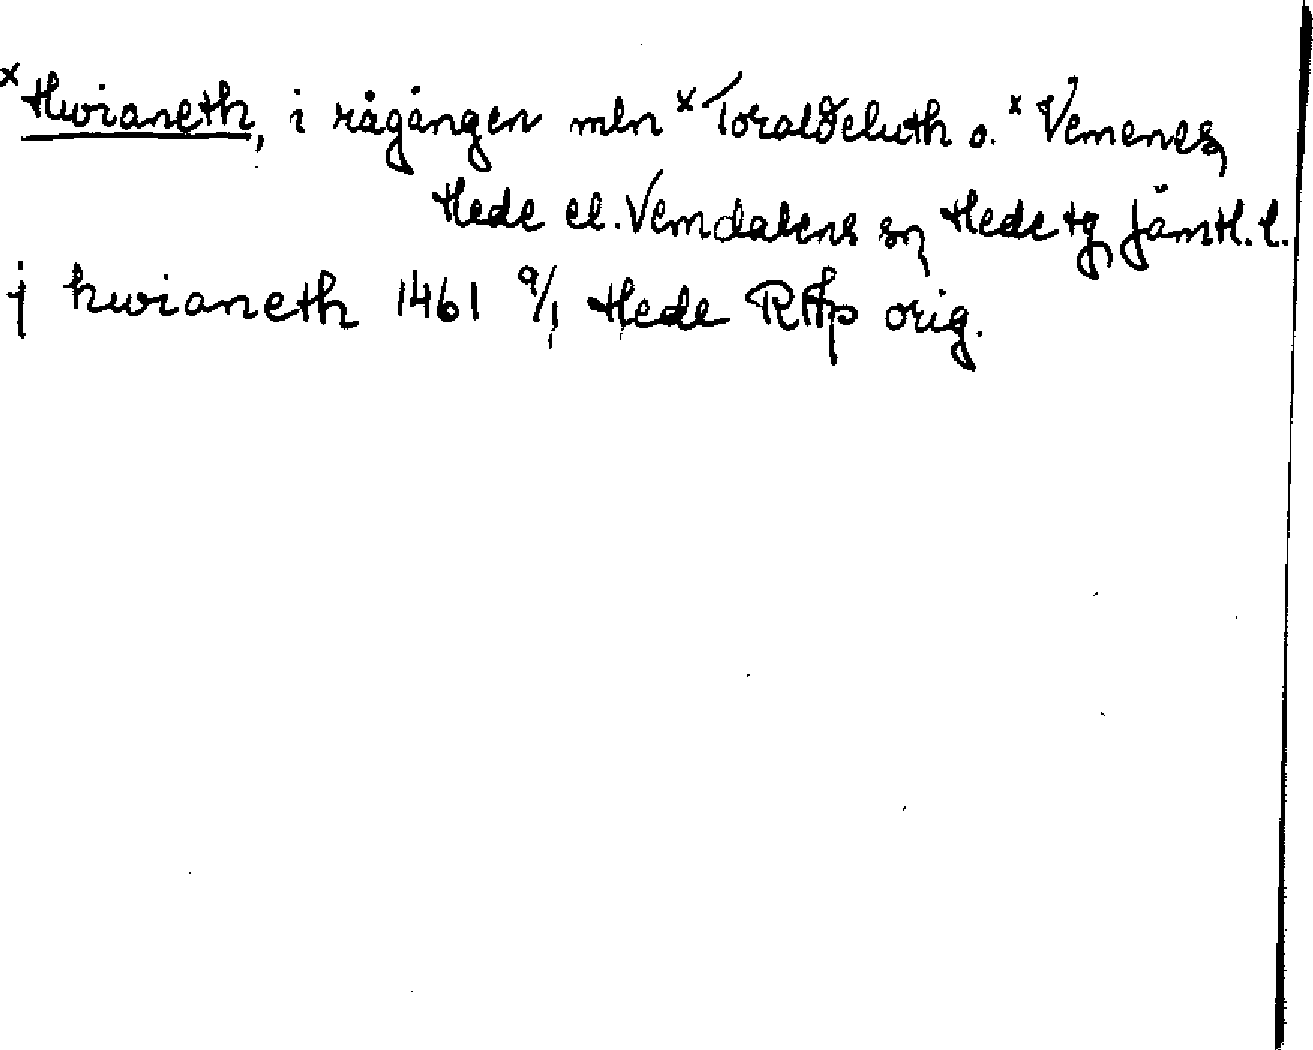 × Hwianeth, i rågången mln × Toraldeluth o. × Vemenes,
Hede el. Vemdalens sn, Hede tg, Jämtl. l.
j hwianeth 1461 9/1 Hede RAp orig.